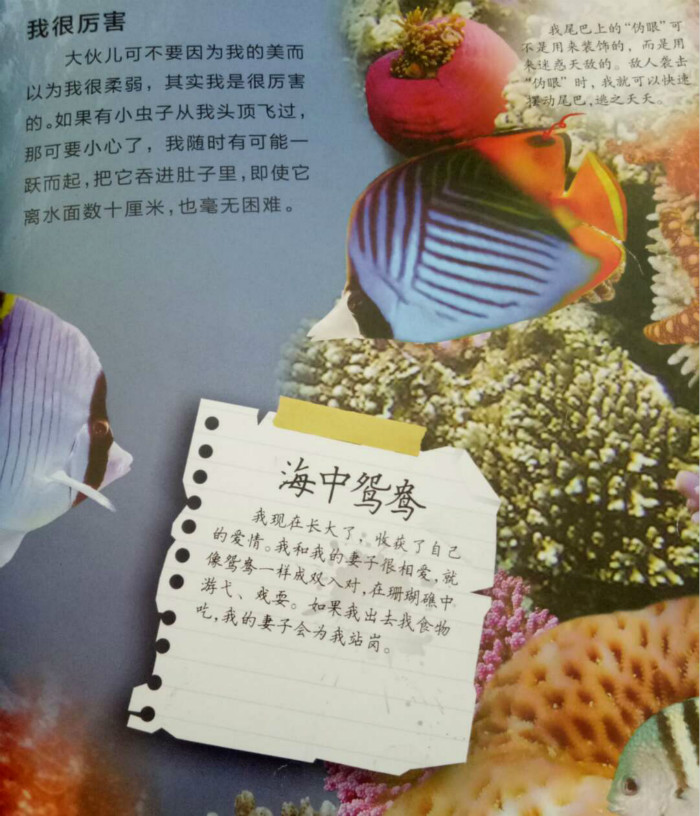 我很厉害
大伙儿可不要因为我的美而
以为我很柔弱，其实我是很厉害
的。如果有小虫子从我头顶飞过，
那可要小心了，我随时有可能一
跃而起，把它吞进肚子里，即使它
离水面数十厘米，也毫无困难。
我尾巴上的“伪眼”可
不是用来装饰的，而是用
来迷惑天敌的。敌人袭击
“伪眼”时，我就可以快速
摆动尾巴，逃之夭夭。
海中鸳鸯
我现在长大了，收获了自己
的爱情。我和我的妻子很相爱，就
像鸳鸯一样成双入对，在珊瑚礁中
游弋、戏耍。如果我出去找食物
吃，我的妻子会为我站岗。